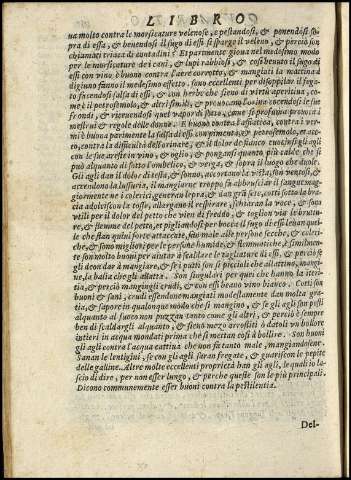 LIBRO
ua molto contra le morsicature velenose, e pestandosi, & ponendosi so-
pra di essa, & beuendosi il sugo di essi si sparge il veleno, & perciò son
chiamati triaca di contadini? Et parimente gioua nel medesimo modo
per le morsicature de i cani, & lupi rabbiosi, & così beuuto il sugo di
essi con vino è buono contra l'aere corrotto, & mangiati la mattina à
digiuno fanno il medesimo effetto, sono eccellenti per disoppilar il fega-
to facendosi salsa di essi, & con herbe che sieno di virtù aperitiua, co-
me è il petrosemolo, & altri simili, & prouocano l'orina cocendosi le sue
frondi, & riceuendosi quel vapor di sotto,
mestrui & regole delle donne. E buono contra l'asmatica, contra i ver-
mi è buona parimente la salsa di essi con pimenta, & petrosemolo, et ace-
to, contra la difficultà dell'orinare, & il dolor de fianco cuocinsi gli agli
con le sue areste in vino, & oglio, & pongansi quanto più calde che si
può alquanto di sotto l'ombelico, & verga, & sopra il luogo che duole.
Gli agli dan il dolor di testa, & sonno, accortano la vista, son ventosi, &
accendono la lussuria, il mangiarne troppo fa abbrusciar il sangue, mag-
giormente ne i colerici, generan lepra, & dan gra sete, cotti sotto la bra-
cia adolciscon la tosse, allargano il respirare, schiaran la voce, & sono
vtili per il dolor del petto che vien di freddo, & toglion via le brutu-
re, & flemme del petto, et pigliandosi per bocca il sugo di essi leuan quel-
le che stan quiui forte attaccate, son male alle persone secche, & coleri-
che, & sono migliori per le persone humide, & flemmatiche, & similmen-
te son molto buoni per aiutar à scaldare le tagliature di essi, & perciò se
gli deon dar à mangiare, & se i putti son sì picciole che allattino, mangi-
ne, la balia che gli allatta. Son singulari per quei che hanno la itteri-
tia, & perciò mangingli crudi, & con essi beano vino bianco. Cotti son
buoni & sani, crudi essendone mangiati modestamente dan molta gra-
tia, & sapore in qualonque modo che si mangino, & se gli agli son posti
alquanto al fuoco non puzzan tanto come gli altri, & perciò è sempre
ben di scaldargli alquanto, & sieno mezo arrostiti ò datoli vn bollore
intieri in acqua mondati prima che si mettan così à bollire. Son buoni
gli agli contra l'acqua cattiua che non fa tanto male, mangiandosene.
Sanan le lentigini, se con gli agli saran fregate, & guariscon le pepite
delle galline. Altre molte eccellenti proprietà han gli agli, le quali io la-
scio di dire, per non esser lungo, & perche queste son le più principali.
Dicono communemente esser buoni contra la pestilentia.
Del-